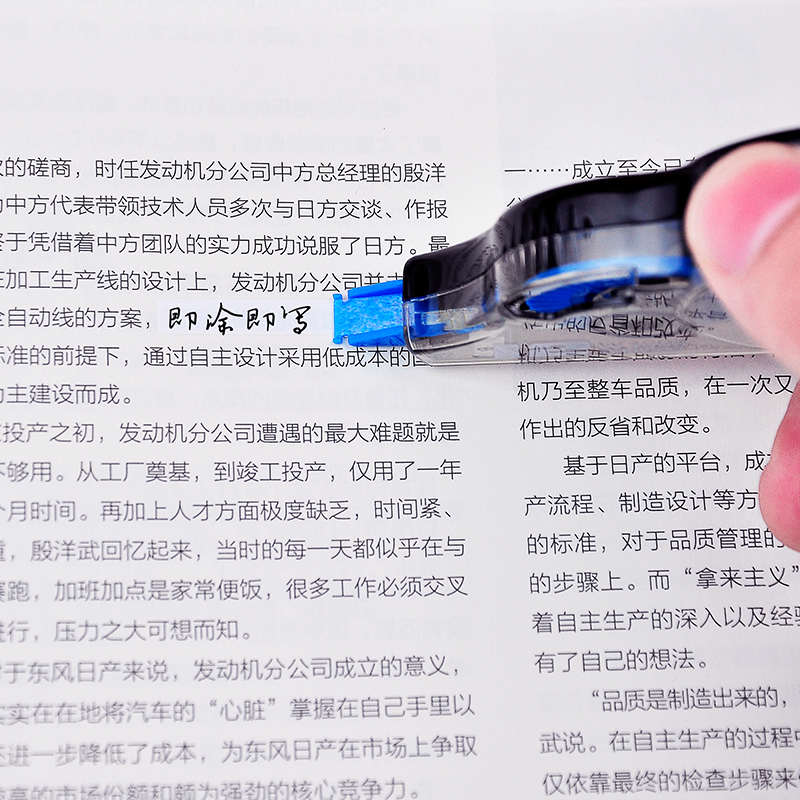 的磋商，时任发动机分公司中方总经理的殷洋
中方代表带领技术人员多次与日方交谈、作报
于凭借着中方团队的实力成功说服了日方。最
加工生产线的设计上，发动机分公司并
全自动线的方案，即涂即写
标准的前提下，通过自主设计采用低成本的
主建设而成。
投产之初，发动机分公司遭遇的最大难题就是
不够用。从工厂奠基，到竣工投产，仅用了一年
个月时间。再加上人才方面极度缺乏，时间紧、
重，殷洋武回忆起来，当时的每一天都似乎在与
赛跑，加班加点是家常便饭，很多工作必须交叉
进行，压力之大可想而知。
对于东风日产来说，发动机分公司成立的意义，
实实在在地将汽车的“心脏”掌握在自己手里以
还进一步降低了成本，为东风日产在市场上争取
高的市场份额和颇为强劲的核心竞争力。
一……成立至今已
机乃至整车品质，在一次又
作出的反省和改变。
基于日产的平台，成
产流程、制造设计等方
的标准，对于品质管理的
的步骤上。而“拿来主义”
着自主生产的深入以及经
有了自己的想法。
“品质是制造出来的，
武说。在自主生产的过程中
仅依靠最终的检查步骤来